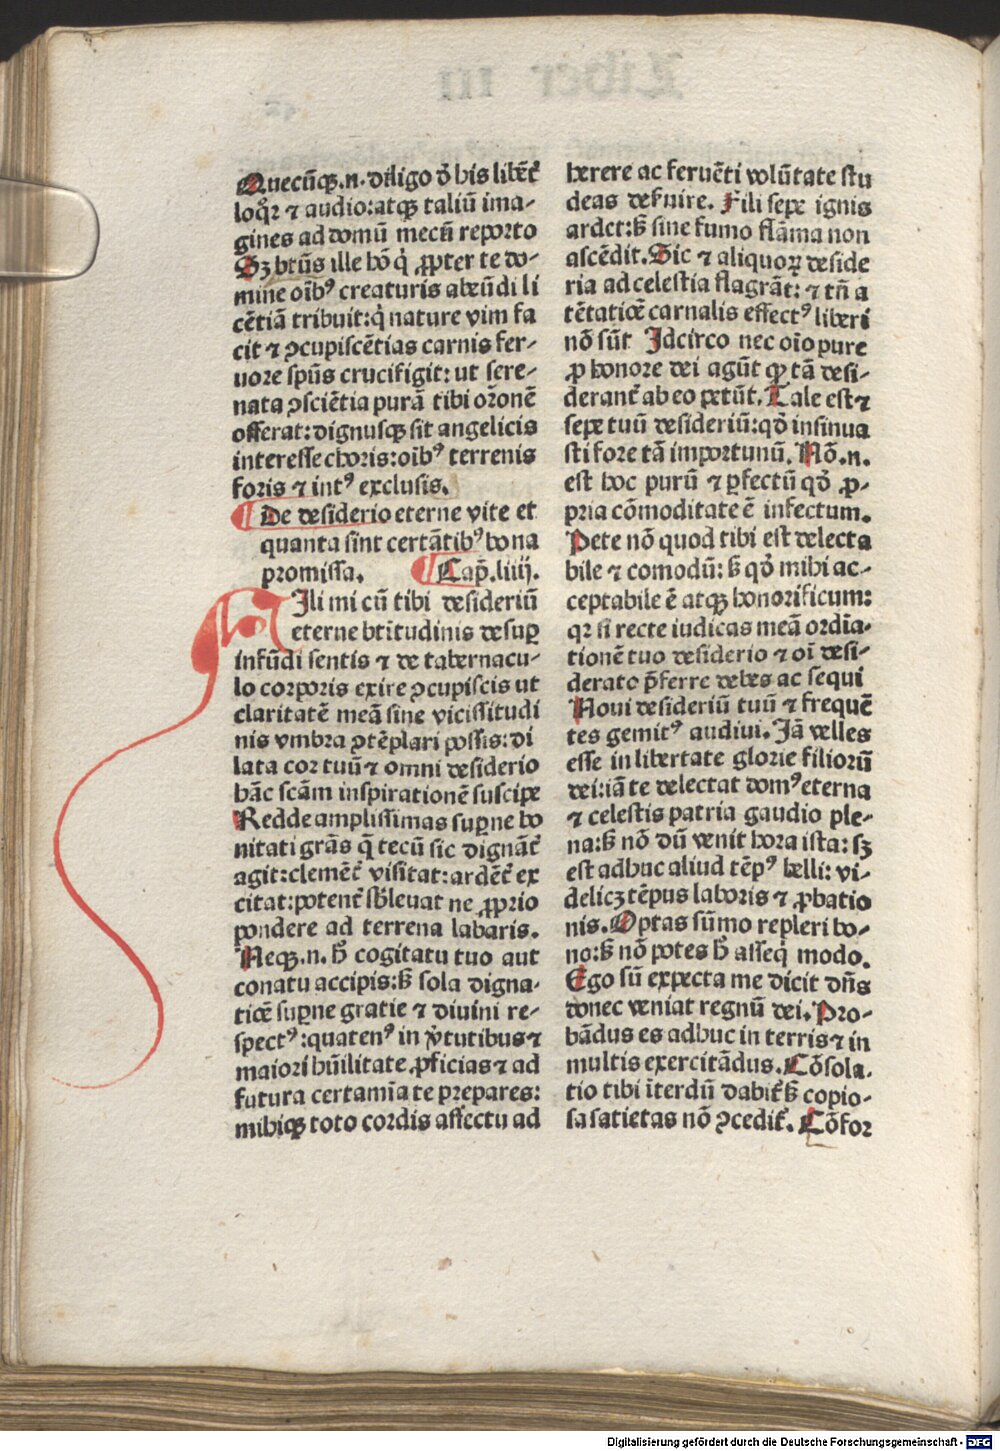 Quecūqꝫ.n. diligo ꝺ̄ his libēt᷑
loqꝛ᷑ ⁊ audio:atqꝫ taliū ima-
gines ad domū mecū reporto
Sꝫ btūs ille hō q̇ ꝓpter te do-
mine oīb⁹ creaturis abeūdi li
cētiā tribuit:q̇ nature vim fa
cit ⁊ ꝯcupiscētias carnis fer-
uore spūs crucifigit: ut sere-
nata ꝯsciētia purā tibi oꝛ̄onē
offerat:dignusqꝫ sit angelicis
interesse choris:oīb⁹ terrenis
foris ⁊ int⁹ exclusis.
De desiderio eterne vite et
quanta sint certātib⁹ bona
promissa. Cap̄.liiij.
Fili mi cū tibi desideriū
eterne bt̄itudinis desuꝑ
infūdi sentis ⁊ de tabernacu-
lo corporis exire ꝯcupiscis ut
claritatē meā sine vicissitudi
nis vmbra ꝯtēplari possis:di
lata cor tuū ⁊ omni desiderio
hāc scām inspirationē suscipe
Redde amplissimas suꝑne bo
nitati grās q̄ tecū sic dignāt᷑
agit:clemēt᷑ visitat:ardēt᷑ ex
citat:potent᷑ sb̄leuat ne ꝓprio
pondere ad terrena labaris.
Neqꝫ.n. h̄ cogitatu tuo aut
conatu accipis:ꝫ sola digna-
tiōe suꝑne gratie ⁊ diuini re-
spect⁹:quaten⁹ in v̇tutibus ⁊
maiori hūilitate ꝓficias ⁊ ad
futura certamīa te prepares:
mihiqꝫ toto cordis affectu ad
herere ac feruēti volūtate stu
deas deſuire. Fili sepe ignis
ardet:ꝫ sine fumo flāma non
ascēdit. Sic ⁊ aliquoꝝ deside
ria ad celestia flagrāt: ⁊ tn̄ a
tētatiōe carnalis effect⁹ liberi
nō sūt Idcirco nec oīo pure
ꝓ honore dei agūt ꝙ tā desi-
derant᷑ ab eo petūt. Tale est ⁊
sepe tuū desideriū:qꝺ̄ insinua
sti fore tā importunū. Nō.n.
est hoc purū ⁊ ꝑfectū qꝺ̄ ꝓ-
pria cōmoditate ē infectum.
Pete nō quod tibi est delecta
bile ⁊ comodū: ꝫ qꝺ̄ mihi ac-
ceptabile ē atqꝫ honorificum:
qꝛ si recte iudicas meā ordīa-
tionē tuo desiderio ⁊ oī desi-
derato p̄ferre debes ac sequi
Noui desideriū tuū ⁊ frequē
tes gemit⁹ audiui. Iā velles
esse in libertate glorie filiorū
dei:iā te delectat dom⁹ eterna
⁊ celestis patria gaudio ple-
na:ꝫ nō dū venit hora ista: sꝫ
est adhuc aliud tēp⁹ belli: vi-
delicꝫ tēpus laboris ⁊ ꝓbatio
nis. Optas sūmo repleri bo-
no:ꝫ nō potes h̄ asseq̇ modo.
Ego sū expecta me dicit dn̄s
donec veniat regnū dei. Pro-
bādus es adhuc in terris ⁊ in
multis exercitādus. Cōsola-
tio tibi īterdū dabit᷑ꝫ copio-
sa satietas nō ꝯcedit᷑. Cōfor
Digitalisierung gefördert durch die Deutsche Forschungsgemeinschaft - DFG